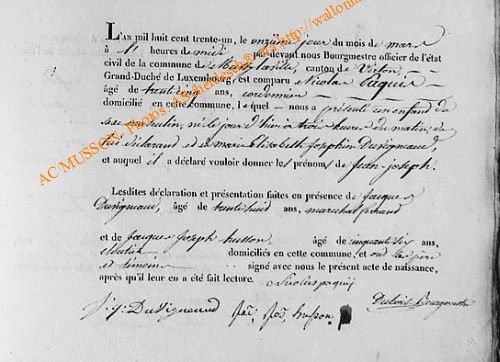 L'AN mil huit cent trente-un, le onzième jour du mois de mars
à heures de midi par-devant nous Bourgmestre officier de l'état
civil de la commune de canton de Virton,
Grand-Duché de Luxembourg, est comparu Nicolas Paquis
âgé de ans, cordonnier
domicilié en cette commune, lequel nous a présenté un enfant du
sexe masculin, né le jour d'hier à trois heures du matin, de
lui déclarant et de marie Elisabeth Josephine Duvigneaud
et auquel il a déclaré vouloir donner les prénoms de Jean-joseph.
Lesdites déclaration et présentation faites en présence de Jacques
Duvigneaud, âgé de trente huit ans, marechal ferrand
et de Jacques Joseph husson, âgé de cinquante six ans,
cloutier domiciliés en cette commune, et ont les père
et témoins signé avec le présent acte de naissance,
après qu'il leur en a été fait lecture. Nicolas paquis
J. J. Duvigneaud husson Dubois Bourgmestre
AC MUSSON Photos http://wallonia